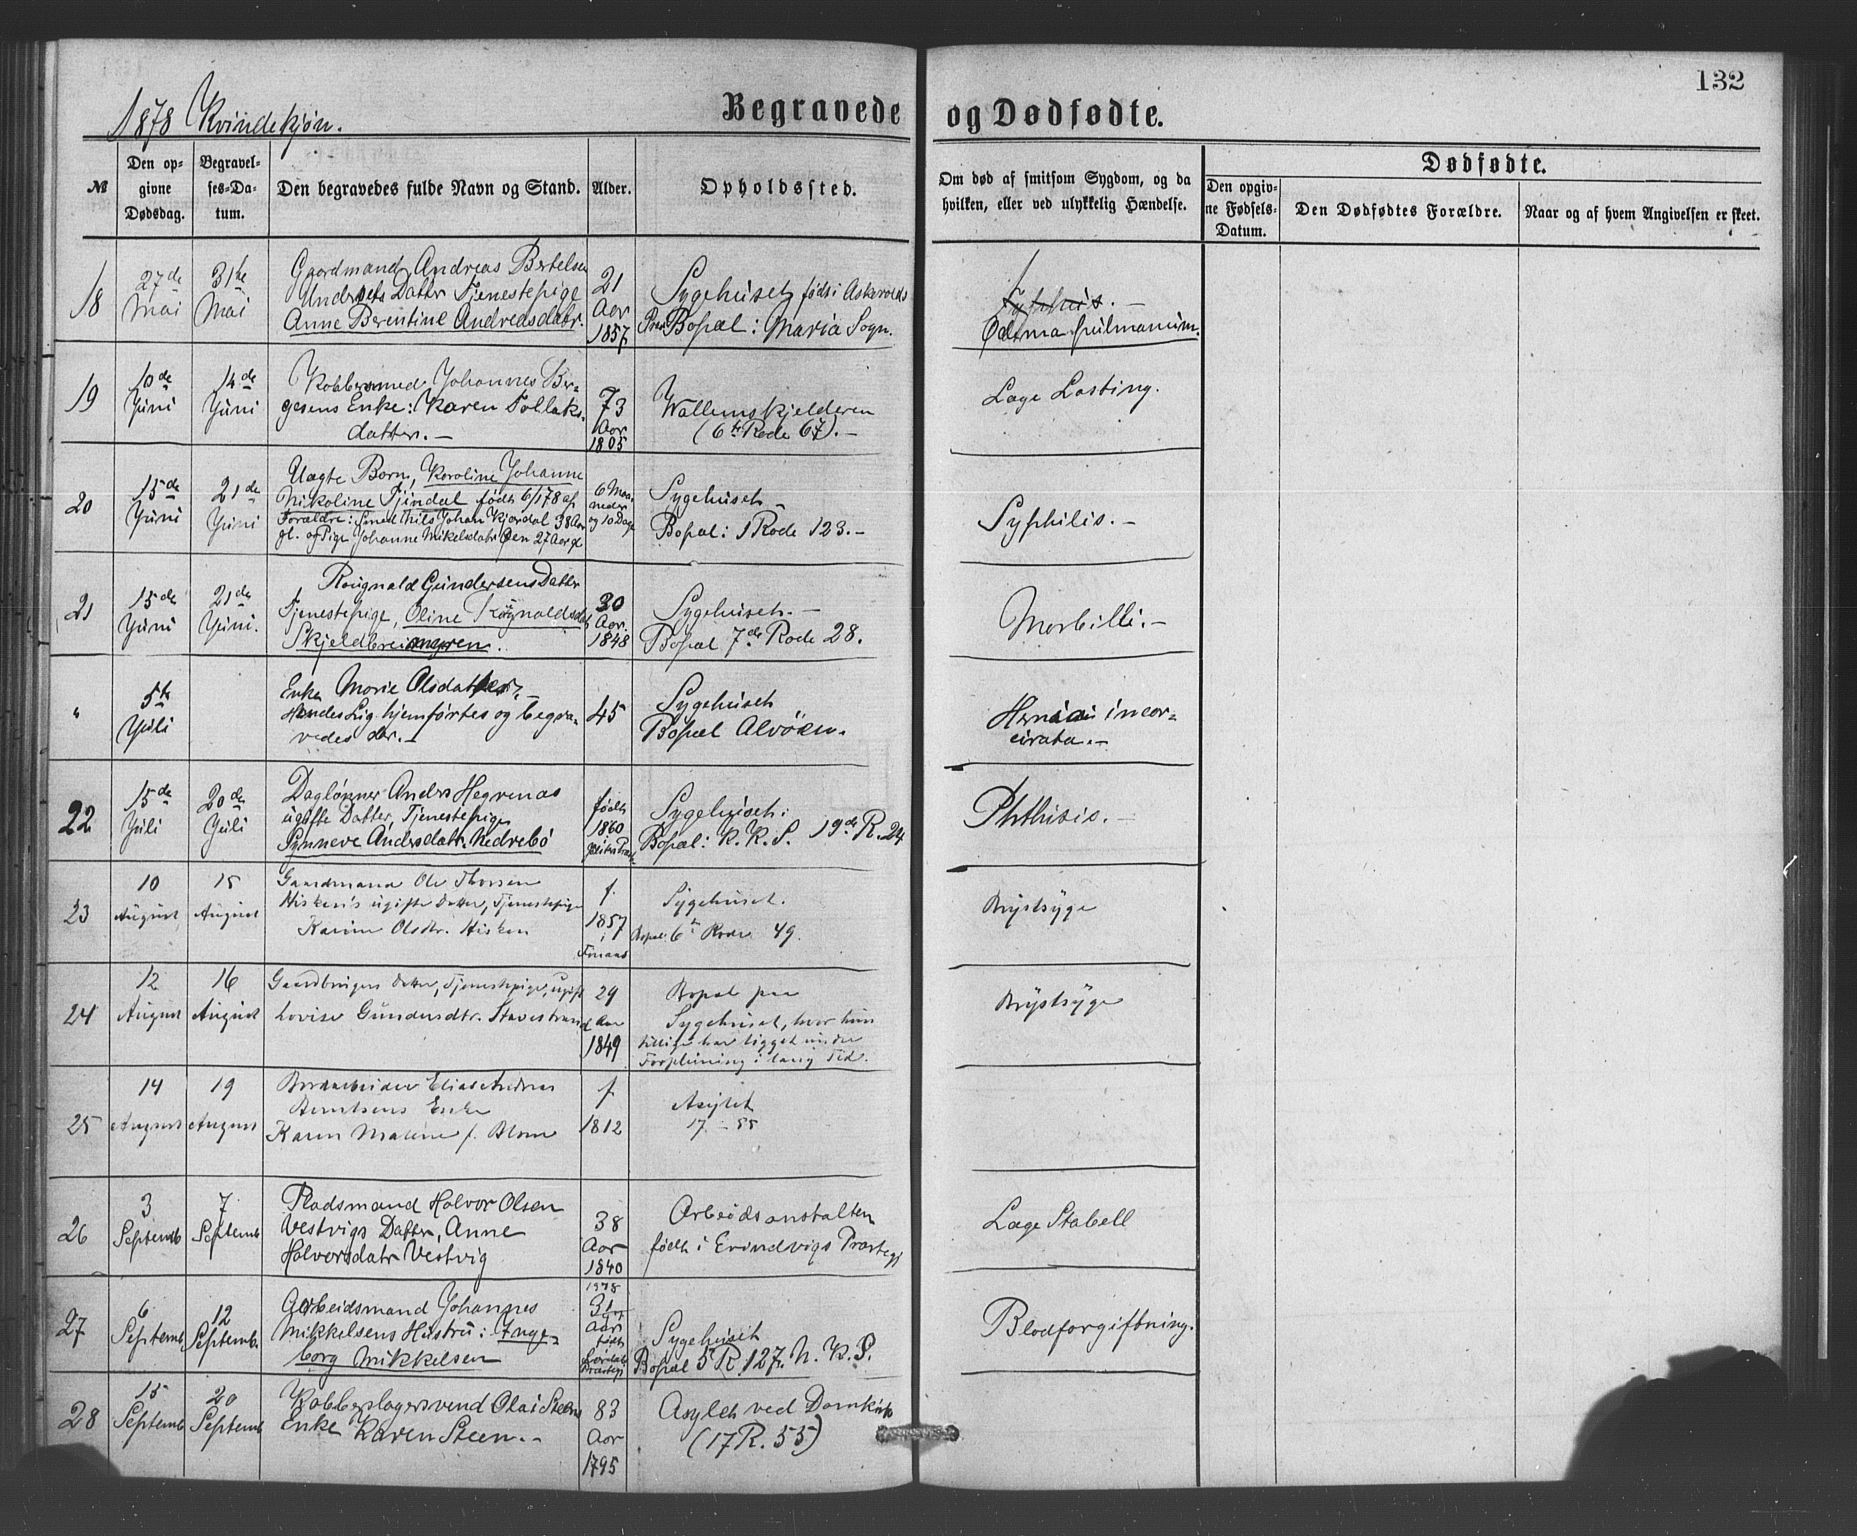 132
1878 Kvindekjøn.
Begravede og Dødfødte.
№
Den op-
givne
Dødsdag.
Begravel-
ses-Da-
tum.
Den begravedes fulde Navn og Stand.
Alder.
Opholdssted.
Om død af smitsom Sygdom, og da
hvilken, eller ved ulykkelig Hændelse.
Dødfødte.
Den opgiv-
ne Fødsels-
Datum.
Den Dødfødtes Forældre.
Naar og af hvem Angivelsen er skeet.
18
27de
Mai
31te
Mai
Gaardmand Andreas Bertelsen
Datter Tjenestepige
Anne Berentine Andreasdatr.
21
Aar
1857
Sygehuset, født i Askevolds
Bopæl: Maria Sogn.
Typhus. -
Odema pulmanum.
19
10de
Juni
14de
Juni
Kobbersmed Johannes Ber-
gesens Enke: Karen Tollaks-
datter. -
73
Aar
1805
Wallemskjelderen
(6te Rode 67). -
Læge Losting.
20
15de
Juni
21de
Juni
Uægte Barn, Karoline Johanne
Nikoline Tjindal født 6/1 78 af
Forældre: Smed Nils Johan Kjørdal 38 Aar
gl. og Pige Johanne Mikelsdatr 27 Aar gl
6 Maa-
neder
og 10 Dage
Sygehuset -
Bopæl: 1 Rode 123. -
Syphilis. -
21
15de
Juni
21de
Juni.
Raugnald Gundersens Datter
Tjenestepige, Oline Røgnaldsdatr
Skjeldbreimyren.
30
Aar.
1848
Sygehuset. -
Bopæl 7de Rode 28.
Morbilli. -
"
5te
Juli
Enke Marie Olsdatter, -
Hendes Lig hjemførtes og begra-
vedes der. -
45
Sygehuset
Bopæl Alvøen.
Hernia incar-
cirata. -
22
15de
Juli
20de
Juli
Daglønner Anders Hegrenæs
ugifte Datter, Tjenestepige
Synneve Andersdatr. Kedrebö
født
1860
Sygehuset:
Bopæl: K. K. S. 19de R. 24
Phthisis. -
23
10
August
15
August
Gaardmand Ole Thorsen
Hisken's ugifte Datter, Tjenestepige
Karine Olsdtr. Hisken
f.
1857
i
Finaas
Sygehuset.
Bopæl: 6te Rode 49.
Brystsyge
24
12
August
16
August
Gaardbrugers Datter, Tjenestepige, ugift
Lovise Gundersdtr. Stavestrand
29
Aar
1849
Bopæl paa
Sygehuset, hvor hun
tillige har ligget under
Forpleining i lang Tid.
Brystsyge
25
14
August
19
August
Bordarbeider Elias Andreas
Berntsens Enke
Karen Malene f. Blom
f.
1812
Asylet
17 - 55
26
3
Septemb
7
Septemb
Pladsmand Halvor Olsen
Vestvigs Datter, Anne
Halvorsdatr Vestvig
38
Aar
1840
Arbeidsanstalten
født i Evindvigs Præstegj
Læge Stabell
27
6
Septemb.
12
Septemb.
Arbeidsmand Johannes
Mikkelsens Hustru: Inge-
borg Mikkelsen
31
Aar
født
Sygehuset
Bopæl 5 R. 127. N. K. S.
Blodforgiftning.
28
15
Septemb
20
Septemb
Kobberslagersvend Olai Steens
Enke Karen Steen. -
83
Aar
1795
Asylet ved Domkirk
(17 R. 55)